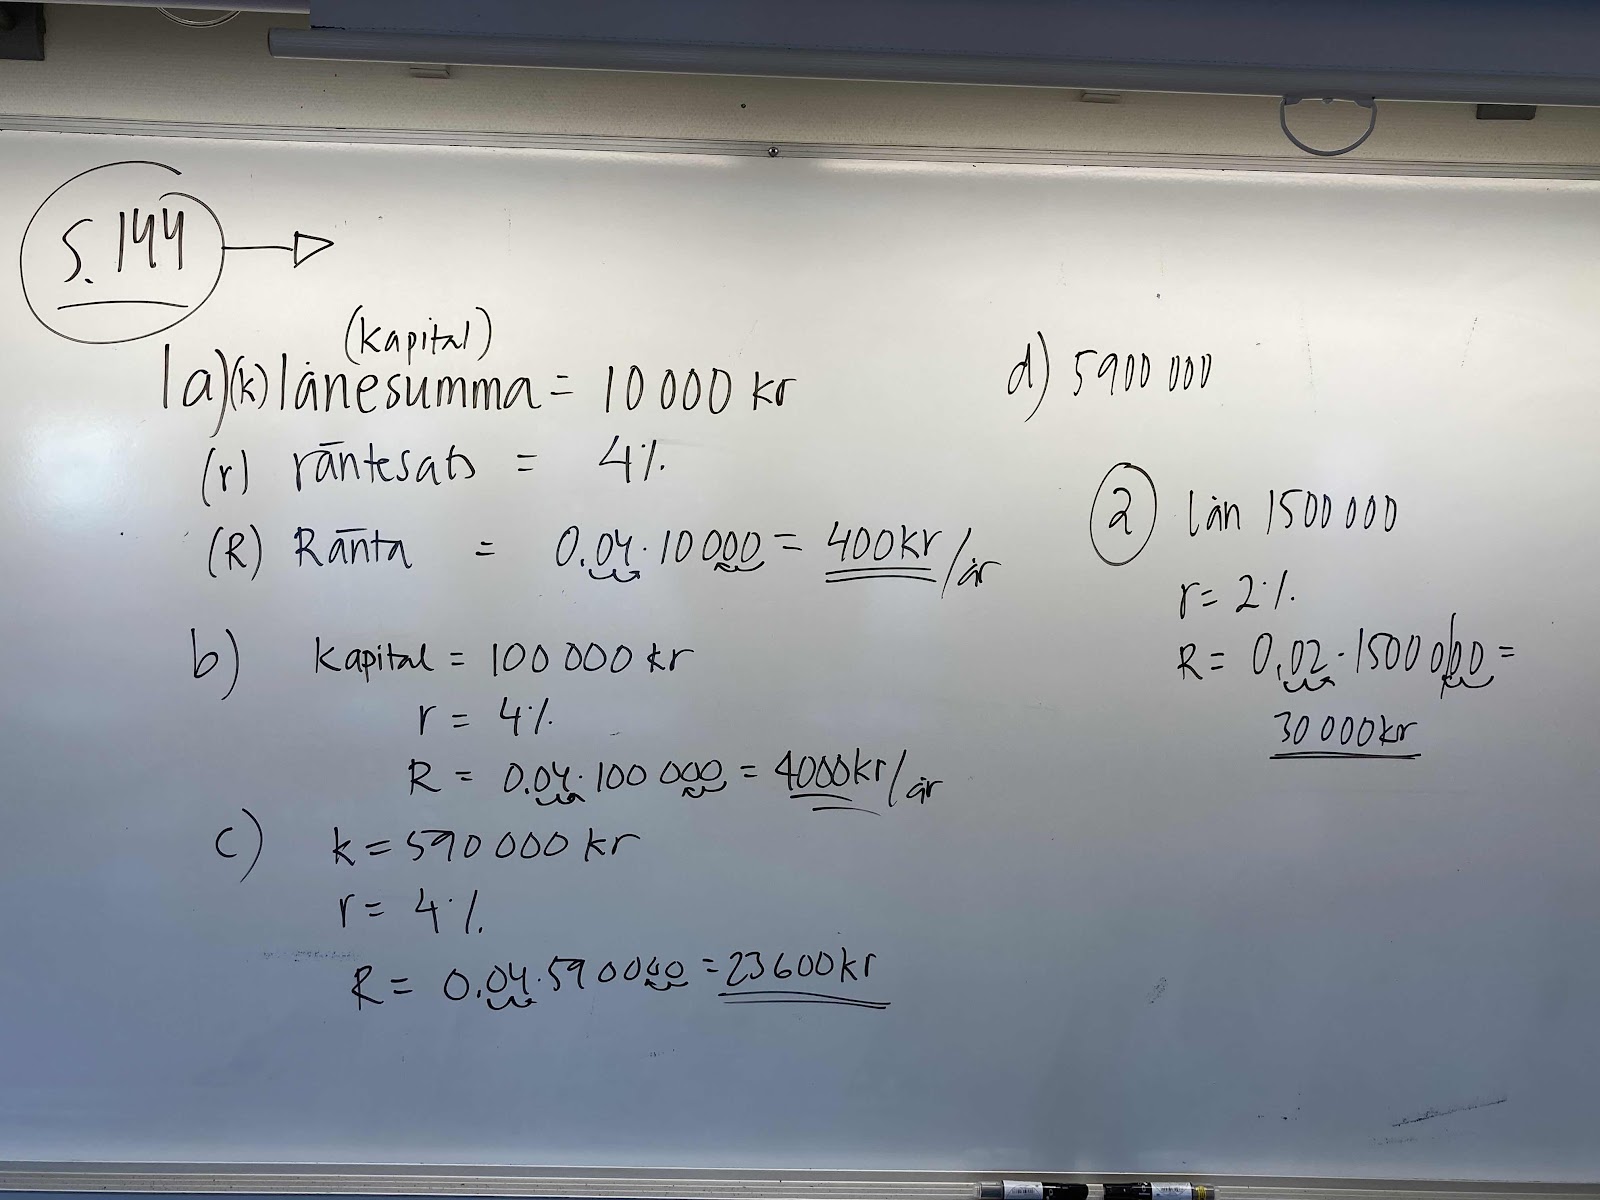 S. 144
(kapital)
1a)(k) lånesumma = 10 000 kr
(r) räntesats = 4%
(R) Ränta = 0.04 · 10 000 = 400kr/år
b) kapital = 100 000 kr
r = 4%
R = 0.04 · 100 000 = 4000kr/år
c) k = 590 000 kr
r = 4%
R = 0.04 · 590 000 = 23 600 kr
d) 5900 000
2 lån 1500 000
r = 2%
R = 0.02 · 1500 000 =
30 000 kr